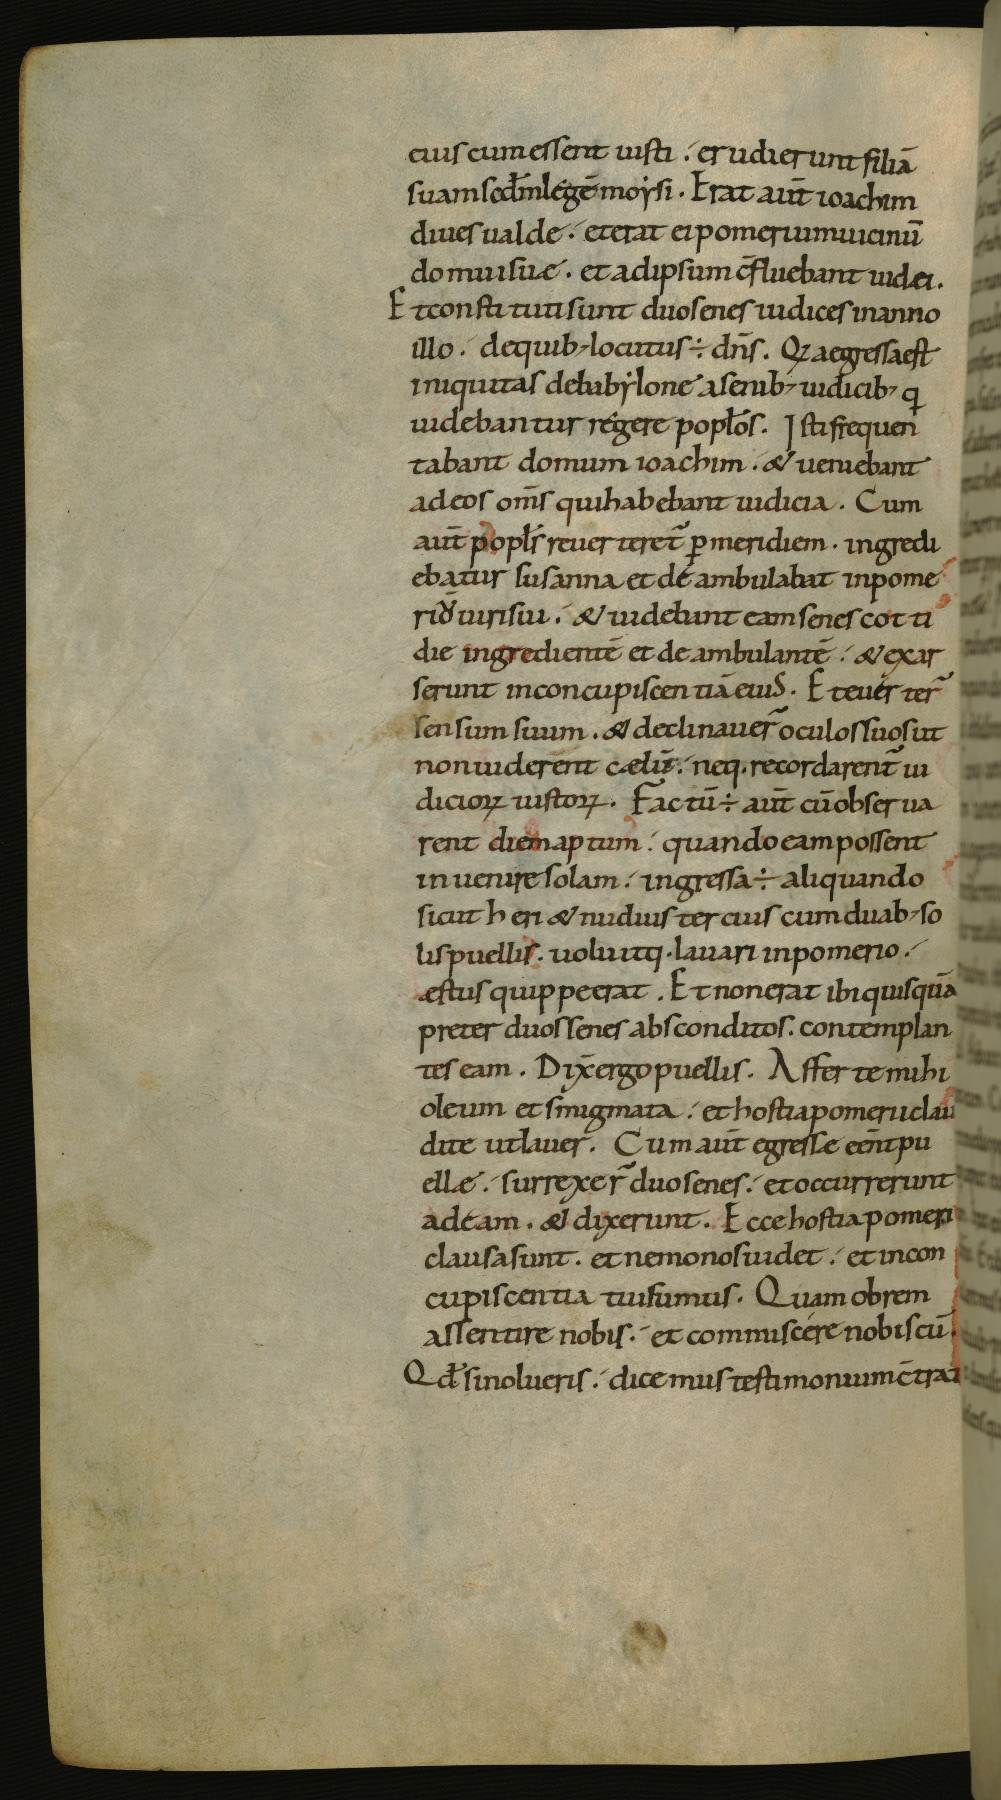 eius cum essent iusti . erudierunt filiā
suam scdm̄ legē moysi . Erat aut̄ ioachim
diues ualde . et erat ei pomerium uicinū
domui suæ . et ad ipsum c̄fluebant iudæi .
Et constituti sunt duo senes iudices in anno
illo . de quib; locutus ÷ dn̄s . Qꝫ a egressa est
iniquitas de babylone a senib; iudicib; q
uidebantur regere popłos . Isti frequen
tabant domum ioachim . & ueniebant
ad eos om̄s qui habebant iudicia . Cum
aut̄ popłs reuerteret̄ ꝑ meridiem . ingredi
ebatur susanna et deambulabat in pome
rio uiri sui . & uidebant eam senes cotti
die ingredientē et deambulantē . & exar
serunt in concupiscentiā eius . Et euerter̄
sensum suum . & declinauer̄ oculos suos ut
non uiderent cælū . neq . recordarent̄ iu
dicioꝝ iustoꝝ . Factū ÷ aut̄ cū obserua
rent diem aptum . quando eam possent
inuenire solam . ingressa ÷ aliquando
sicut heri & nudius tercius cum duab; so
lis puellis . uoluitq . lauari in pomerio .
æstus quippe erat . Et non erat ibi quisquā
preter duos senes absconditos . contemplan
tes eam . Dix̄ ergo puellis . Afferte mihi
oleum et smigmata . et hostia pomerii clau
dite ut lauer̄ . Cum aut̄ egressæ eēnt pu
ellæ . surrexer̄ duo senes . et occurrerunt
ad eam . & dixerunt . Ecce hostia pomeri
clausa sunt . et nemo nos uidet . et in con
cupiscentia tui sumus . Quam obrem
assentire nobis . et commiscere nobiscū .
Qd̄ si nolueris . dicemus testimonium c̄tra t